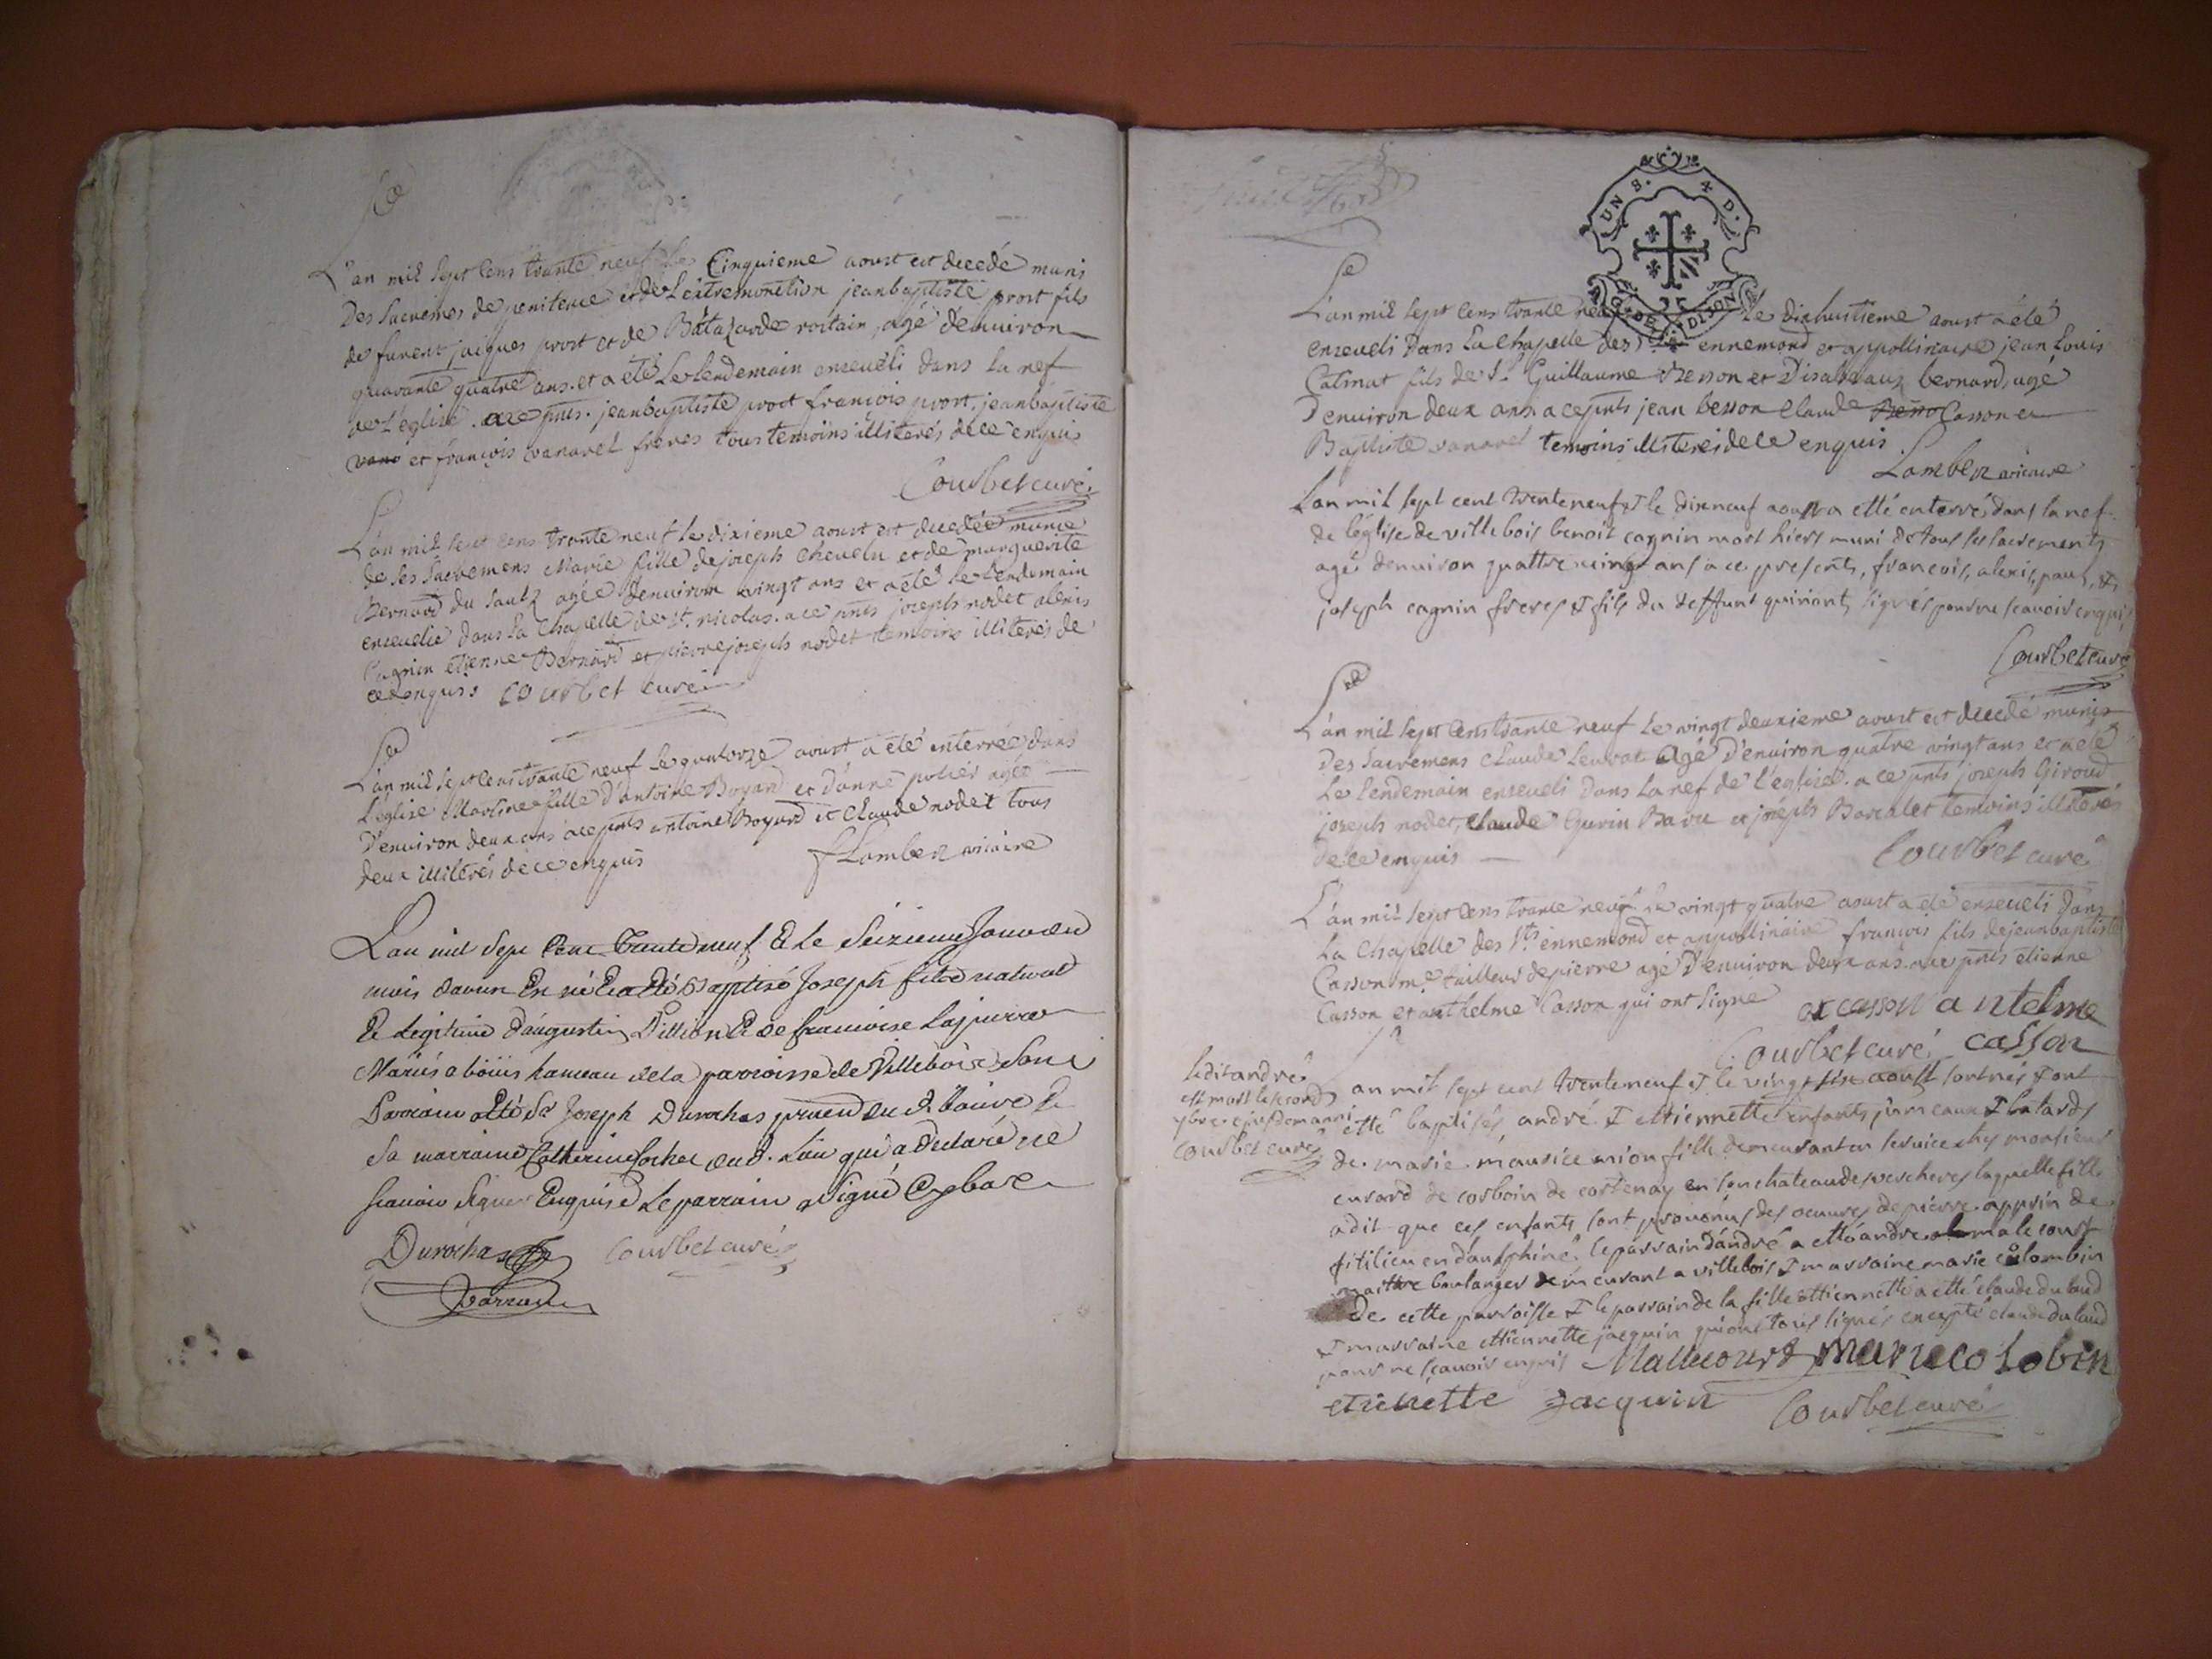 L'an mil sept cens trante neuf le Cinquieme aoust est decedé munis
Des sacremens de penitence et de L'extremonction jeanbaptiste prost fils
de furent jaiques prost et de Baltazarde rostain, agé denuiron
quarante quatre ans. et a eté Le Lendemain enseueli dans La nef
de L'eglise. a ce pnts. jeanbaptiste prost françois prost, jeanbaptiste
et françois vanarel freres tous temoins illiterés de ce enquis
Courbet curé
L'an mil sept cens trante neuf Le dixieme aoust est decedée munie
de ses sacremens Marie fille de joseph Cheuelu et de marguerite
Bernard du Sault agée d'enuiron vingt ans et a eté Le Lendemain
enseuelie dans La Chapelle de st. nicolas. a ce pnts joseph nodet alexis
Cagnin etienne Bernard et pierre joseph nodet temoins illiterés de
ce enquis Courbet curé
L'an mil sept cens trante neuf Le quatorze aoust a eté enterrée dans
L'eglise Marline fille d'antoine Boyard et d'anne agée
D'enuiron deux ans a ce pnts antoine Boyard et Claude nodet tous
deux illiterés de ce enquis Lamber vicaire
L'an mil Sept Cent Trante neuf & Le Seizieme Jour du
mois daoust Est né Et a Eté Baptisé Joseph fils naturel
Et Legitime d'augustin Dillion Et de francoise Lapierre
Mariés a boüis hameau de la parroisse de Villebois Son
Parrain a Eté Sr. Joseph Durochas
Sa marraine Catherine du d. Lieu qui a declaré ne
scauoir signer Enquise Le parrain a signé
Durochas Courbet curé
Parrain
UN S. X D.
DE DIJON
L'an mil sept cens trante neuf Le dixhuitieme aoust a eté
enseueli Dans La Chapelle des Sts ennemond et appollinaire jean Louis
Catinat fils de S. Guillaume Besson et D'isabeaux bernard, agé
D'enuiron deux ans. a ce pnts jean besson Claude Casson et
Baptiste vanarel temoins illiterés de ce enquis
Lamber vicaire
L'an mil sept cent trente neuf & le dixneuf aoust a etté enterré dans la nef
de l'église de villebois benoit cagnin mort hiers muni de tous les sacrements
agé denuiron quattre vingt ans a ce presents, francois, alexis, paul, &
joseph cagnin freres & fils du deffunt qui n'ont signés pour ne scauoir enquis
Courbet curé
L'an mil sept cens trante neuf Le vingt deuxieme aoust est decedé munis
Des sacremens Claude Leurat Agé D'enuiron quatre vingt ans et a eté
Le Lendemain enseueli Dans La nef de L'eglise. a ce pnts joseph Giroud
joseph nodet, Claude Gurin Baru et joseph Barcalet temoins illiterés
De ce enquis Courbet curé
L'an mil sept cens trante neuf Le vingt quatre aoust a eté enseueli dans
La Chapelle des Sts. ennemond et appollinaire françois fils de jeanbaptiste
Casson me. tailleur de pierre agé D'enuiron deux ans. a ce pnts etienne
Casson et anthelme Casson qui ont signé e casson antelme
Courbet curé casson
ledit andré
est mort le second
ybre
courbet curé
L'an mil sept cent trente neuf & le vingt six aoust sont nés & ont
etté baptisés andré & ettiennette enfants jumeaux & batards
de marie maurice mion fille demeurant au seruice chez monsieur
cusard de corboin de cortenay en son chateau de vercheres laquelle fille
a dit que ces enfants sont prouenus des oeuures de pierre appvin de
fitilieu en dauphiné. le parrain d'andré a etté andre malecourt
maittre boulanger demeurant a villebois & marraine marie colombin
De cette parroisse & le parrain de la fille ettiennette a etté claude duland
& marraine ettiennette jacquin qui ont tous signés excepté claude duland
pour ne scauoir enquis Mallecourt marie colobin
etienette jacquin Courbet curé